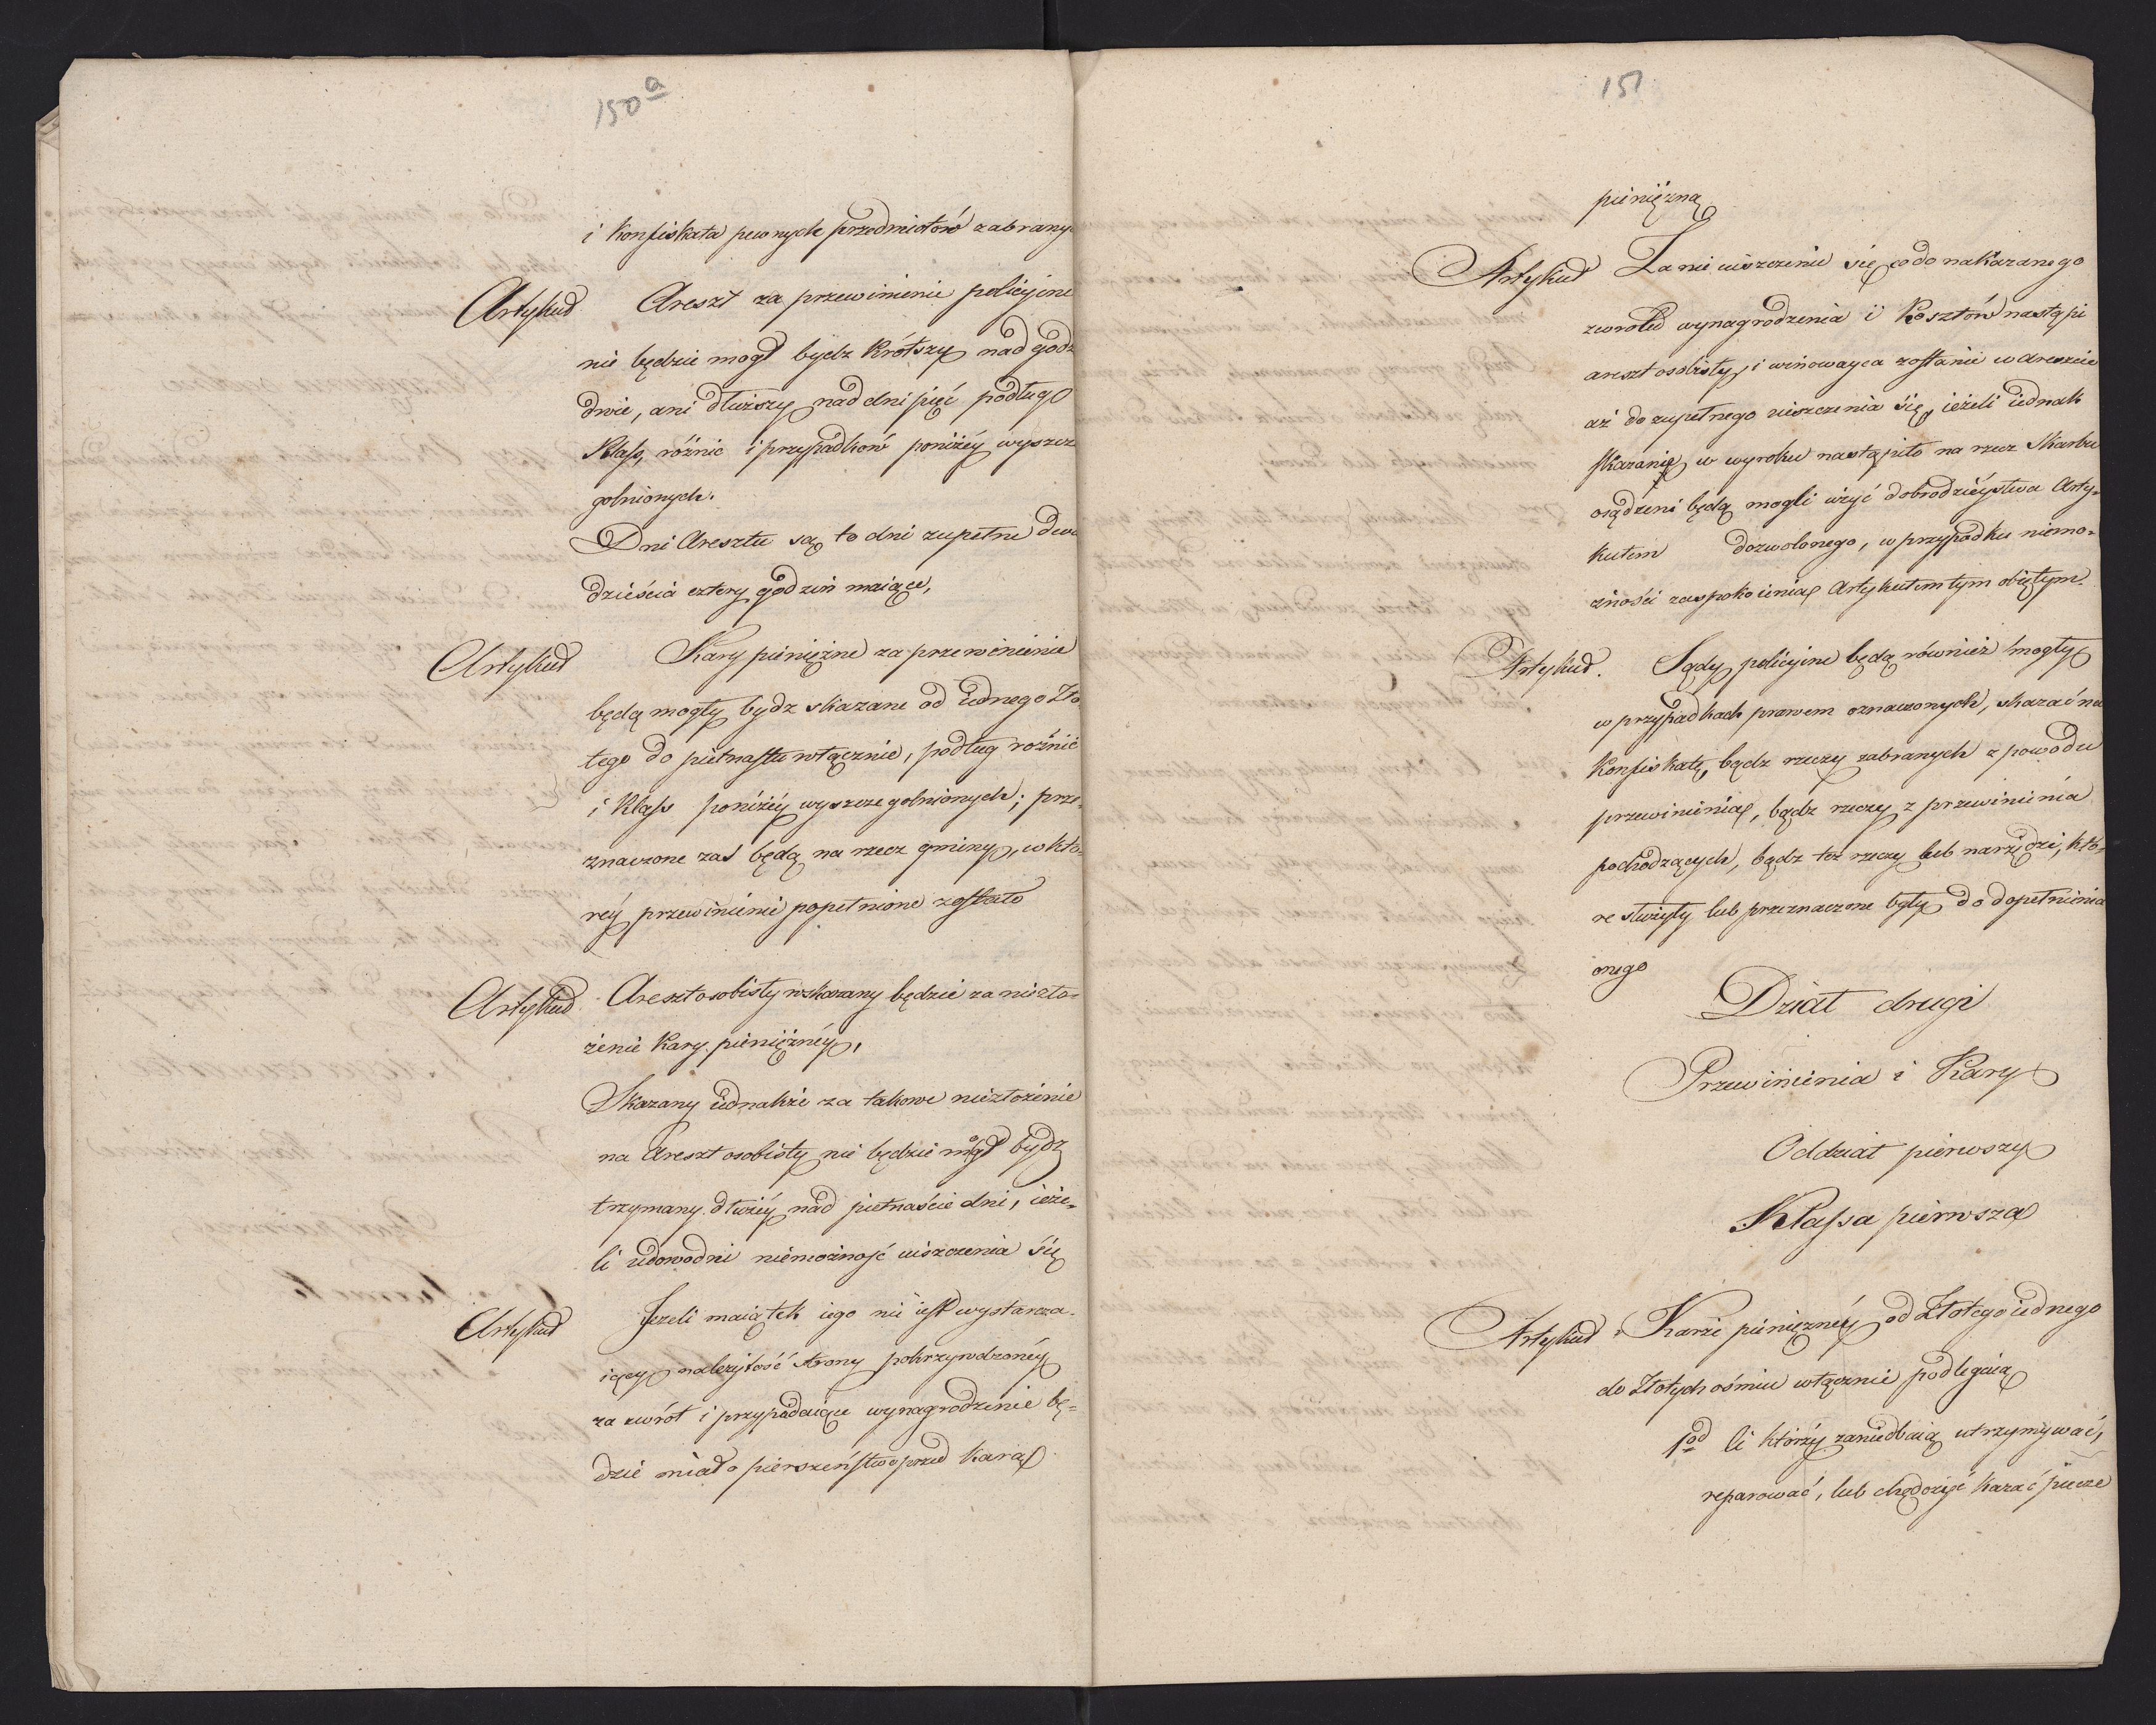 150 a
i konfiskata pewnych przedmiotów zabrany
Artykuł Areszt za przewinienie policyine
nie będzie mogł bydz krótszy nad godz
dwie, ani dłuższy nad dni pięć podług
Klass, różnic i przypadków poniżéy wyszcze
golnionych.
Dni Aresztu są to dni zupełne dwa
dzieścia cztery godzin maiące,
Artykuł Kary pieniężne za przewinienie
będą mogły bydz skazane od iednego Zło
tego do piętnastu włącznie, podług rożnic
i Klass poniżéy wyszczegolnionych; prze-
znaczone zaś będą na rzecz gminy, w któ-
réy przewinienie popełnione zostało
Artykuł Areszt osobisty wskazany będzie za niezło-
żenie kary pieniężnéy,
Skazany iednakże za takowe niezłożenie
na Areszt osobisty nie będzie mógł bydz
trzymany dłużéy nad piętnaście dni, ieże-
li udowodni niemożność uiszczenia się
Artykuł Jeżeli maiątek iego nie iest wystarcza-
iący należytość strony pokrzywdzonéy
za zwrót i przypadaiące wynagrodzenie bę-
dzie miało pierszeństwo przed karą
151
pieniężną
Artykuł Za nie uiszczenie się co do nakazanego
zwrotu wynagrodzenia i Kosztów nastąpi
areszt osobisty, i winowayca zostanie w areszcie
aż do zupełnego uiszczenia się, ieżeli iednak
skazanie w wyroku nastąpiło na rzecz Skarbu
osądzeni będą mogli użyć dobrodzieystwa Arty-
kułem dozwolonego, w przypadku niemo-
żności zaspokoienia Artykułem tym obiętym.
Artykuł. Sądy policyine będą również mogły
w przypadkach prawem oznaczonych, skazać na
Konfiskatę, bądz rzeczy zabranych z powodu
przewinienia, bądz rzeczy z przewinienia
pochodzących, bądz też rzeczy lub narzędzi, któ-
re służyły lub przeznaczone były do dopełnienia
onego
Dział drugi
Przewinienia i Kary
Oddział pierwszy
Klassa pierwsza
Artykuł Karze pieniężnéy od Złotego iednego
do Złotych ośmiu włącznie podlegaią
1od Ci którzy zaniedbaią utrzymywać,
reparować, lub chędożyć kazać piece